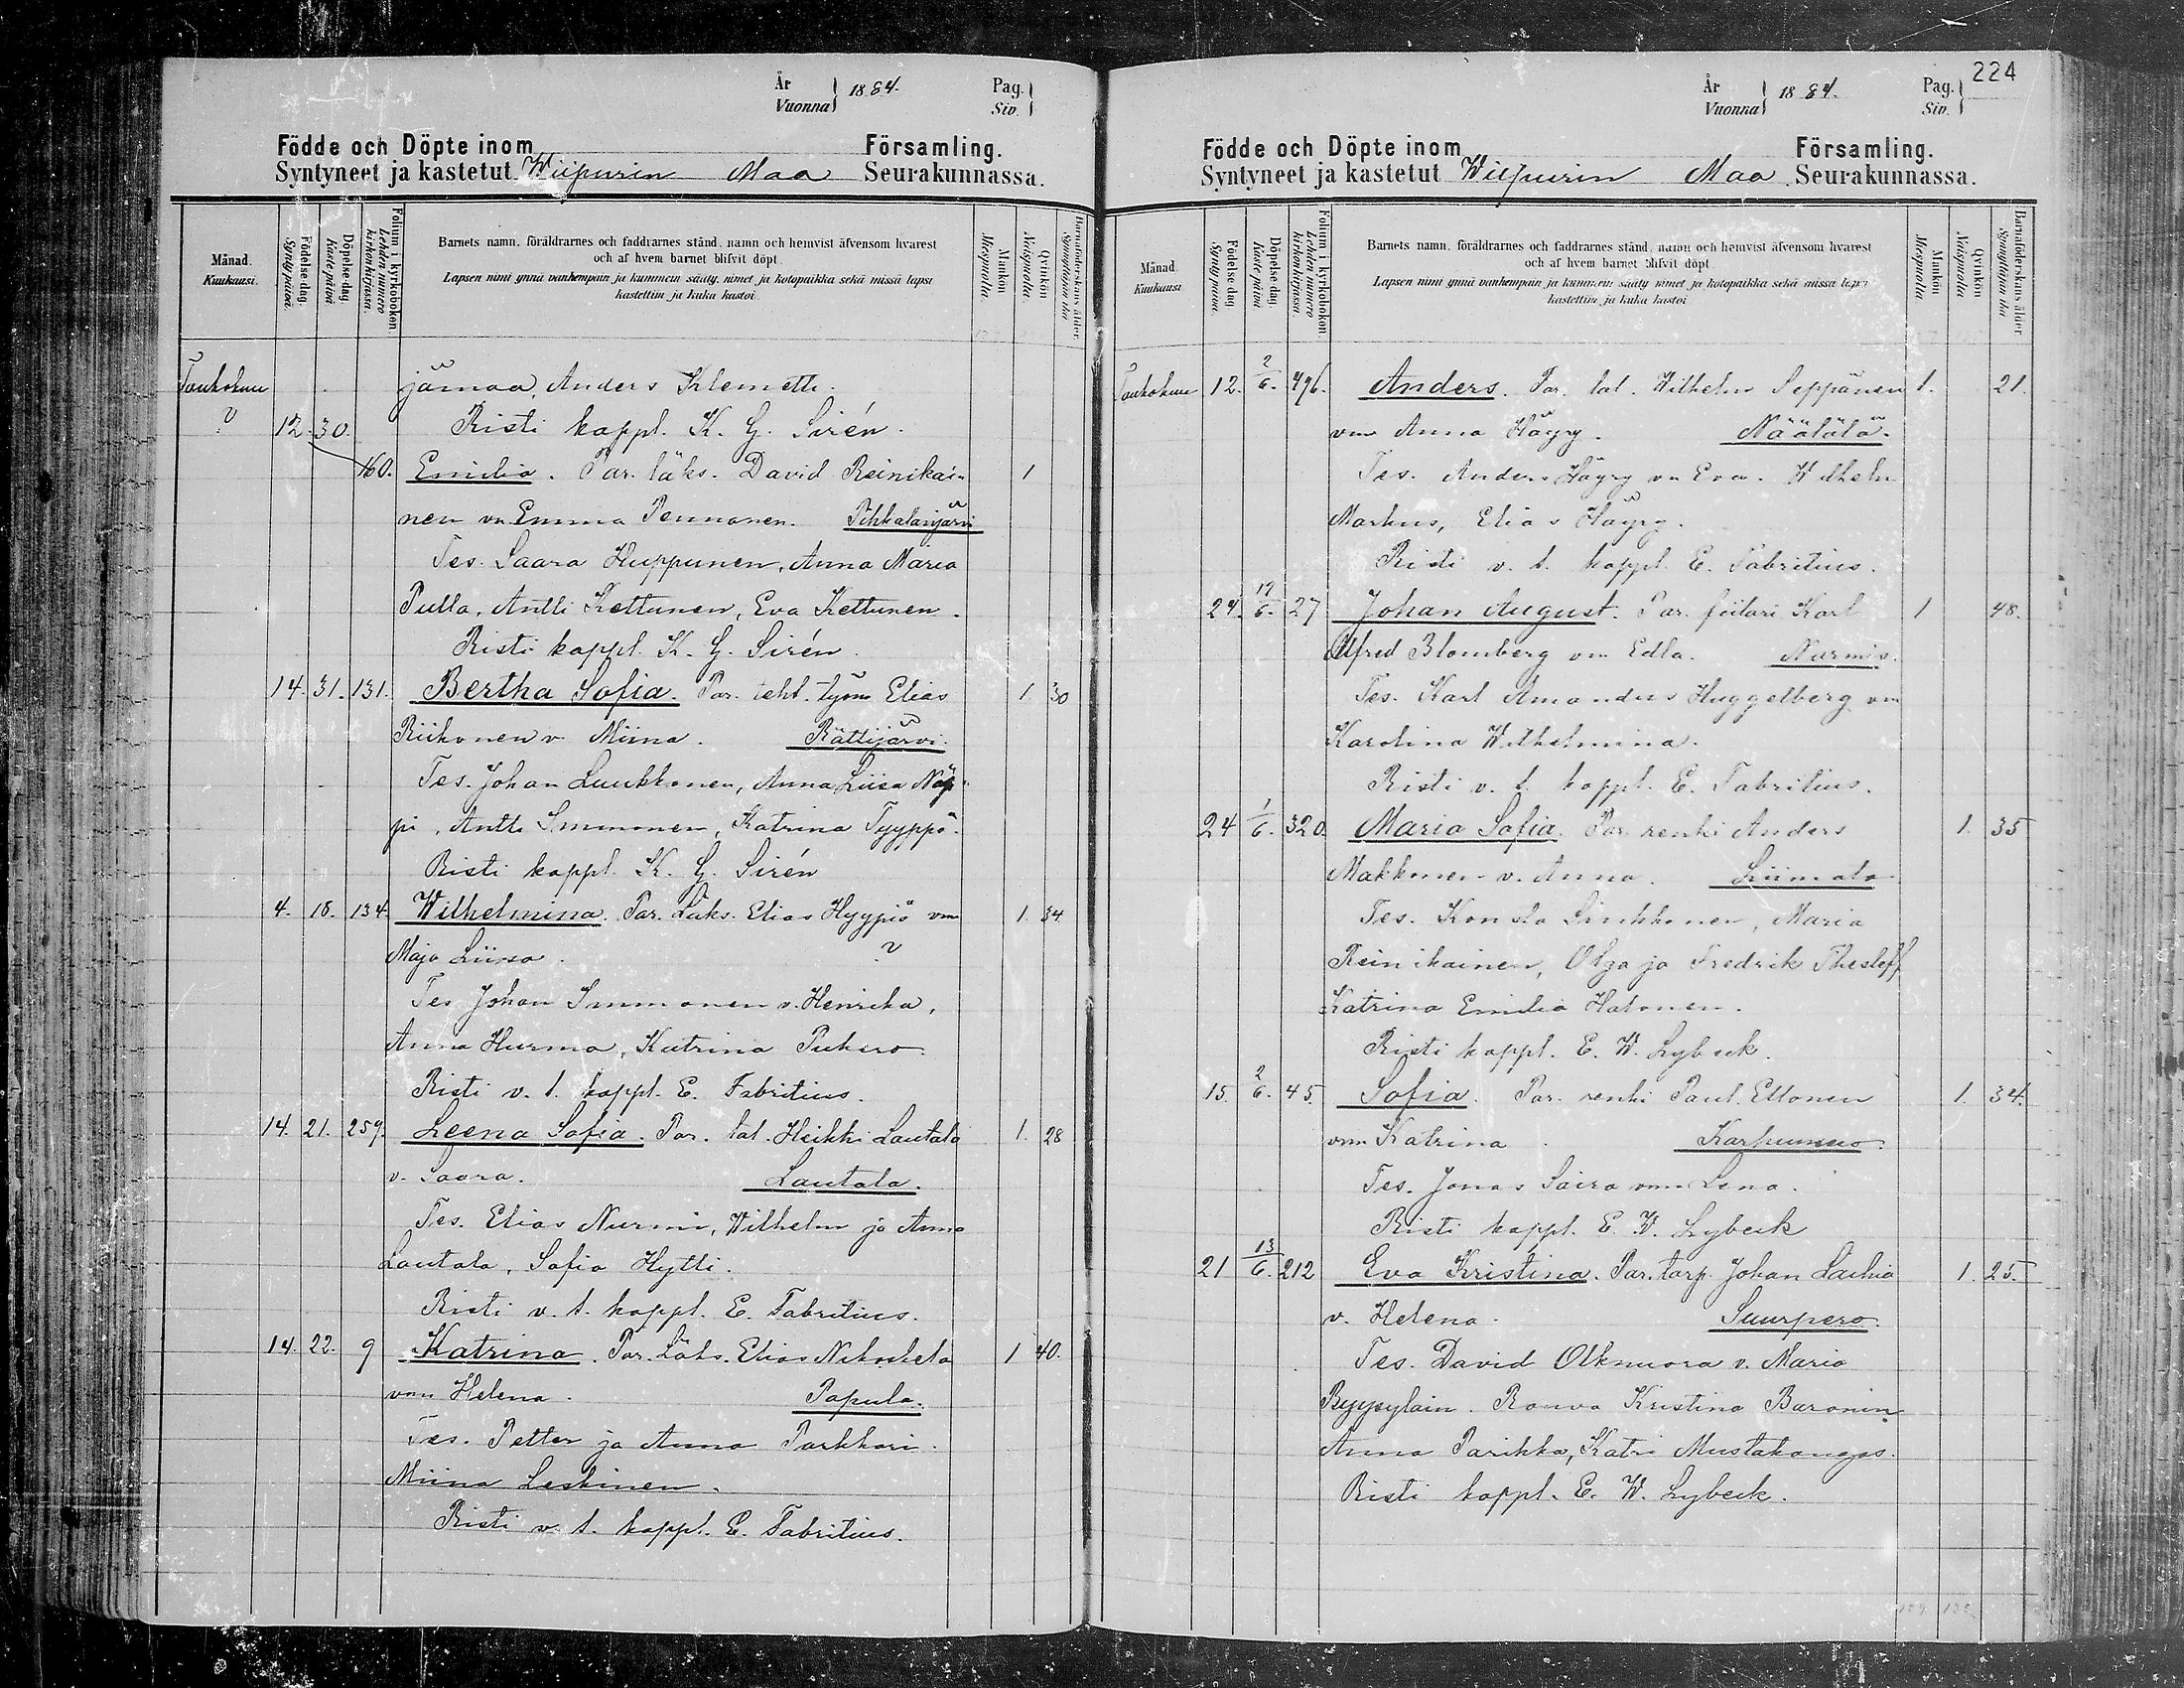 År
Vuonna } 1884.
Pag.
Siv. }
Födde och Döpte inom Församling.
Syntyneet ja kastetut Wiipurin Maa Seurakunnassa.
Månad.
Kuukausi.
Födelse-dag.
Syntypäivä.
Döpelse-dag.
Kastepäivä.
Folium i kyrkoboken
Lehden numero kirkonkirjassa.
Barnets namn, föräldrarnes och faddrarnes stånd, namn och hemvist äfvensom hvarest
och af hvem barnet blifvit döpt.
Lapsen nimi ynnä vanhempain ja kummein sääty, nimet ja kotopaikka sekä missä lapsi
kastettiin ja kuka kastoi.
Mankön
Miespuolta.
Qvinkön
Naispuolta.
Barnaföderskans ålder.
Synnyttäjän ikä
Toukokuu jämaa, Anders Klemetti.
? 12. 30. Risti kappl. K. G. Sirén.
160. Emilia. Par. läks. David Reinikai- 1
nen vn Emma Pennanen. Pihkalanjärvi
Tes. Saara Huppunen, Anna Maria
Pulla, Antti Kettunen, Eva Kettunen.
Risti kappl. K. G. Sirén.
14. 31. 131. Bertha Sofia. Par. teht. työm Elias 1. 30
Riikonen v. Miina. Rättijärvi.
Tes. Johan Luukkonen, Anna Liisa Näp-
pi, Antti Immonen, Katrina Tyyppö.
Risti kappl. K. G. Sirén
4. 18. 134. Wilhelmina. Par. Läks. Elias Hyypiö vm 1. 34.
Maja Liisa. ?
Tes Johan Immonen v. Henrika,
Anna Hurma, Katrina Pukero.
Risti v. t. kappl. E. Fabritius.
14. 21. 259. Leena Sofia. Par. tal. Heikki Lautala 1. 28
v. Saara. Lautala.
Tes. Elias Nurmi, Wilhelm ja Anna
Lautala, Sofia Hytti.
Risti v. t. kappl. E. Fabritius.
14. 22. 9 Katrina. Par. Läks. Elias 1 40.
vm Helena. Papula.
Tes. Petter ja Anna Parkkari.
Miina Leskinen.
Risti v. t. kappl. E. Fabritius.
224
År
Vuonna } 1884.
Pag.
Siv. }
Födde och Döpte inom Församling.
Syntyneet ja kastetut Wiipurin Maa Seurakunnassa.
Månad.
Kuukausi
Födelse-dag.
Syntypäivä.
Döpelse-dag.
Kastepäivä
Folium i kyrkoboken
Lehden numero kirkonkirjassa.
Barnets namn, föräldrarnes och faddrarnes stånd, namn och hemvist äfvensom hvarest
och af hvem barnet blifvit döpt
Lapsen nimi ynnä vanhempain ja kummein sääty nimet ja kotopaikka sekä missä lapsi
kastettiin ja kuka kastoi
Mankön
Miespuolta
Qvinkön
Naispuolta
Barnaföderskans ålder
Synnyttäjän ikä
Toukokuu 12. 2/6. 496. Anders. Par. tal. Wilhelm Seppänen 1. 21.
vm Anna Häyry. Näätälä.
Tes. Anders Häyry vn Eva. Wilhelm
Markus, Elias Häyry.
Risti v. t. kappl. E. Fabritius.
24. 19/6. 27 Johan August. Par. fiilari Karl 1 48.
Alfred Blomberg vm Edla. Nurmis.
Tes. Karl Amandus Huggelberg vm
Karolina Wilhelmina.
Risti v. t. kappl. E. Fabritius.
24 1/6. 320. Maria Sofia. Par. renki Anders 1. 35
Makkonen v. Anna. Liimata
Tes. Konsta Sinkkonen, Maria
Reinikainen, Olga ja Fredrik Thesleff
Katrina Emilia Halonen.
Risti kappl. E. W. Lybeck.
15. 2/6. 45. Sofia. Par. renki Paul Ellonen 1. 34.
vm Katrina.
Tes. Jonas Saira vm Lena.
Risti kappl. E. W. Lybeck
21 13/6. 212 Eva Kristina. Par. torp. Johan 1. 25.
v. Helena. Suurpero.
Tes. David Olkinuora v. Maria
Kristina
Anna Parikka, Katri Mustakangas.
Risti kappl. E. W. Lybeck.